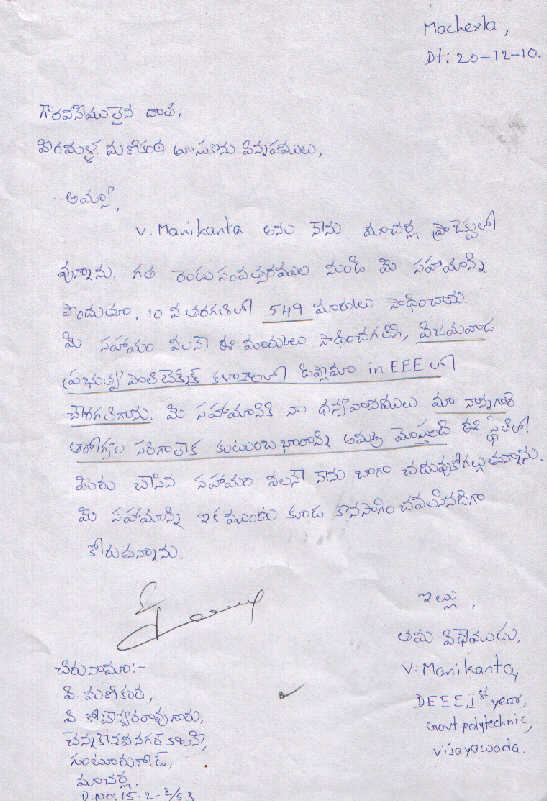 Macherla,
Dt: 20-12-10.
గౌరవనీయులైన దాత,
మణికంఠ వ్రాయునది
అమ్మా,
V. Manikanta అను నేను మాచర్ల ప్రాజెక్టులో
వున్నాను. గత రెండు సంవత్సరముల నుండి మీ సహాయాన్ని
పొందుతూ, 10 వ తరగతిలో 549 మార్కులు సాధించాను.
మీ సహాయం వలనే ఈ మార్కులు సాధించగలిగి, విజయవాడ
ప్రభుత్వ పాలిటెక్నిక్ కళాశాలలో డిప్లొమా in EEE లో
చేరగలిగాను. మీ సహాయానికి నా ధన్యవాదములు మా నాన్నగారి
ఆరోగ్యం సరిగాలేక కుటుంబ భారాన్ని అమ్మ ఈ స్థితిలో
మీరు చేసిన సహాయం వలనే నేను బాగా చదువుకోగల్గుతున్నాను.
మీ సహాయాన్ని ఇక ముందు కూడా కొనసాగించవలసినదిగా
కోరుచున్నాను.
ఇట్లు,
తమ విధేయుడు,
V. Manikanta,
DEEE, 1st year,
Govt polytechnic,
Vijayawada.
చిరునామా:-
వి. మణికంఠ,
వి. కోటేశ్వరరావు గారు,
చెన్నకేశవనగర్ కాలనీ,
గుంటూరురోడ్,
మాచర్ల.
D.No: 15-2-3/53